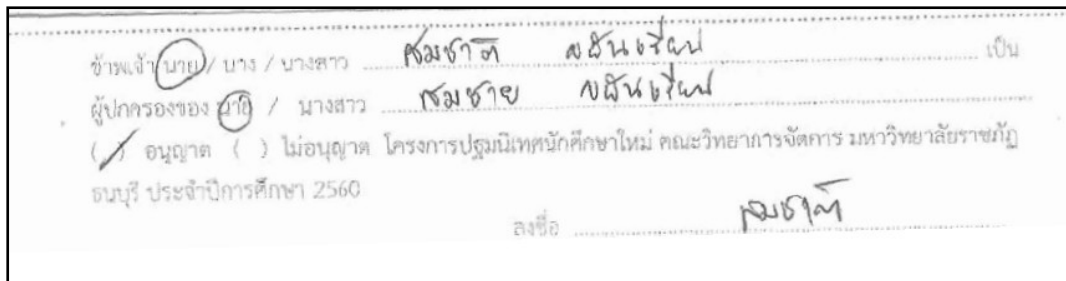 ข้าพเจ้า นาย / นาง / นางสาว สมชาติ ขยันเรียน เป็น
ผู้ปกครองของ นาย / นางสาว สมชาย ขยันเรียน
(/) อนุญาต ( ) ไม่อนุญาต โครงการปฐมนิเทศนักศึกษาใหม่ คณะวิทยาการจัดการ มหาวิทยาลัยราชภัฏ
ธนบุรี ประจำปีการศึกษา 2560
ลงชื่อ สมชาติ